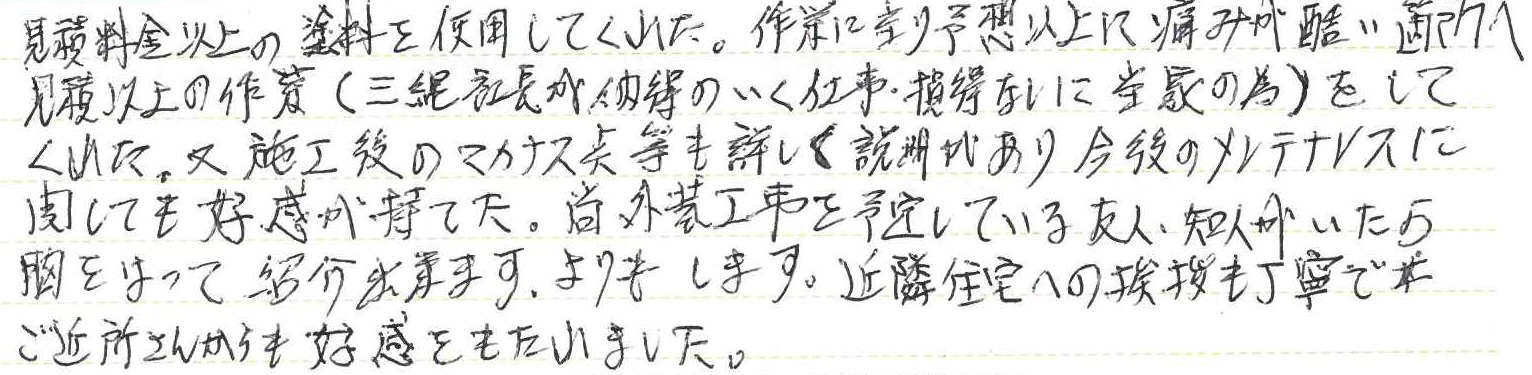 見積料金以上の塗料を使用してくれた。作業に至り予想以上に痛みが酷い箇所へ
見積以上の作業(三縄部長が納得のいく仕事・損得なしに当家の為)をして
くれた。又施工後のマイナス点等も詳しく説明があり今後のメンテナンスに
関しても好感が持てた。尚外装工事を予定している友人、知人がいたら
胸をはって紹介出来ます、よりも します。近隣住宅への挨拶も丁寧で
ご近所さんからも好感をもたれました。